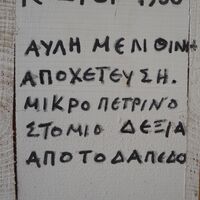 ΑΥΛΗ ΜΕΛΙΘΙΝΗ
ΑΠΟΧΕΤΕΥΣΗ.
ΜΙΚΡΟ ΠΕΤΡΙΝΟ
ΣΤΟΜΙΟ ΔΕΞΙΑ
ΑΠΟ ΤΟ ΔΑΠΕΔΟ